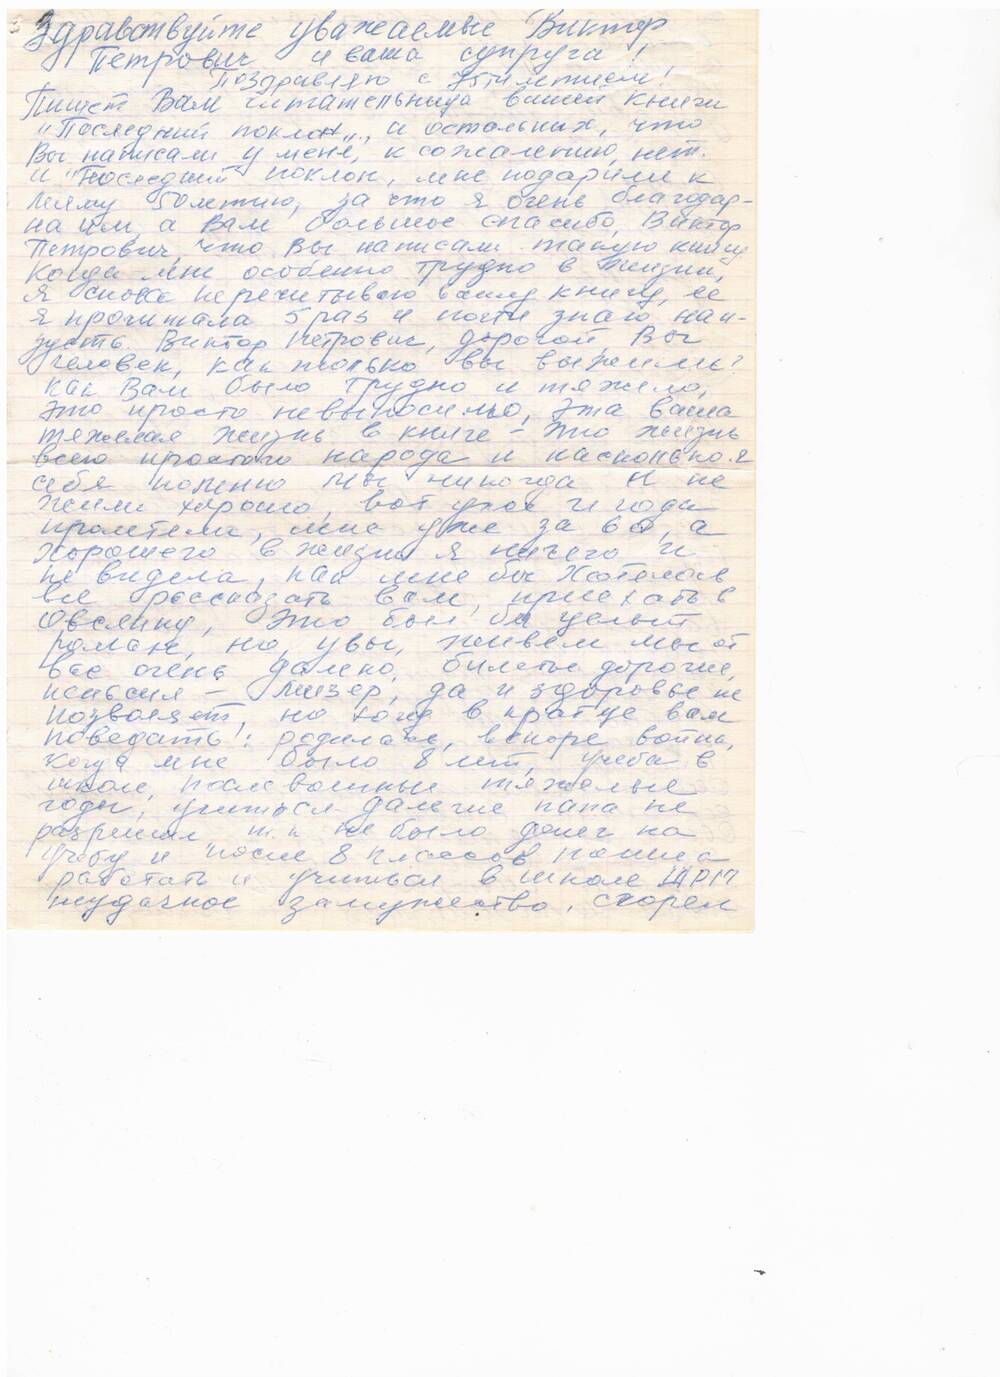 Здравствуйте уважаемые Виктор
Петрович и ваша супруга!
Поздравляю с 75тилетием!
Пишет Вам читательница вашей книги
"Последний поклон", и остальных, что
Вы написали у меня, к сожалению, нет.
и "Последний поклон, мне подарили к
моему 50летию, за что я очень благодар-
на им, а Вам большое спасибо, Виктор
Петрович, что Вы написали такую книгу
Когда мне особенно трудно в жизни,
я снова перечитываю вашу книгу, ее
я прочитала 5 раз и почти знаю наи-
зусть. Виктор Петрович, дорогой Вы
человек, как только вы выжили?
как Вам было трудно и тяжело,
это просто невыносимо, эта ваша
тяжелая жизнь в книге - это жизнь
всего простого народа и насколько я
себя помню мы никогда и не
жили хорошо, вот уже и года
пролетели, мне уже за 60, а
хорошего в жизни я ничего и
не видела, как мне бы хотелось
все рассказать вам, приехать в
Овсянку, это был бы целый
роман, но, увы, живем мы от
вас очень далеко, билеты дорогие,
пенсия - мизер, да и здоровье не
позволяет, но хочу в кратце вам
поведать: родилась, вскоре война,
когда мне было 8 лет, учеба в
школе, послевоенные тяжелые
годы, учиться дальше папа не
разрешил т.к. не было денег на
учебу и после 8 классов пошла
работать и учиться в школе ШРМ
неудачное замужество,